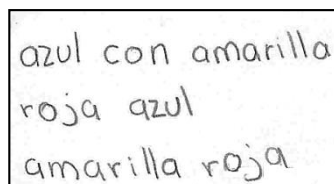 azul con amarilla
roja azul
amarilla roja